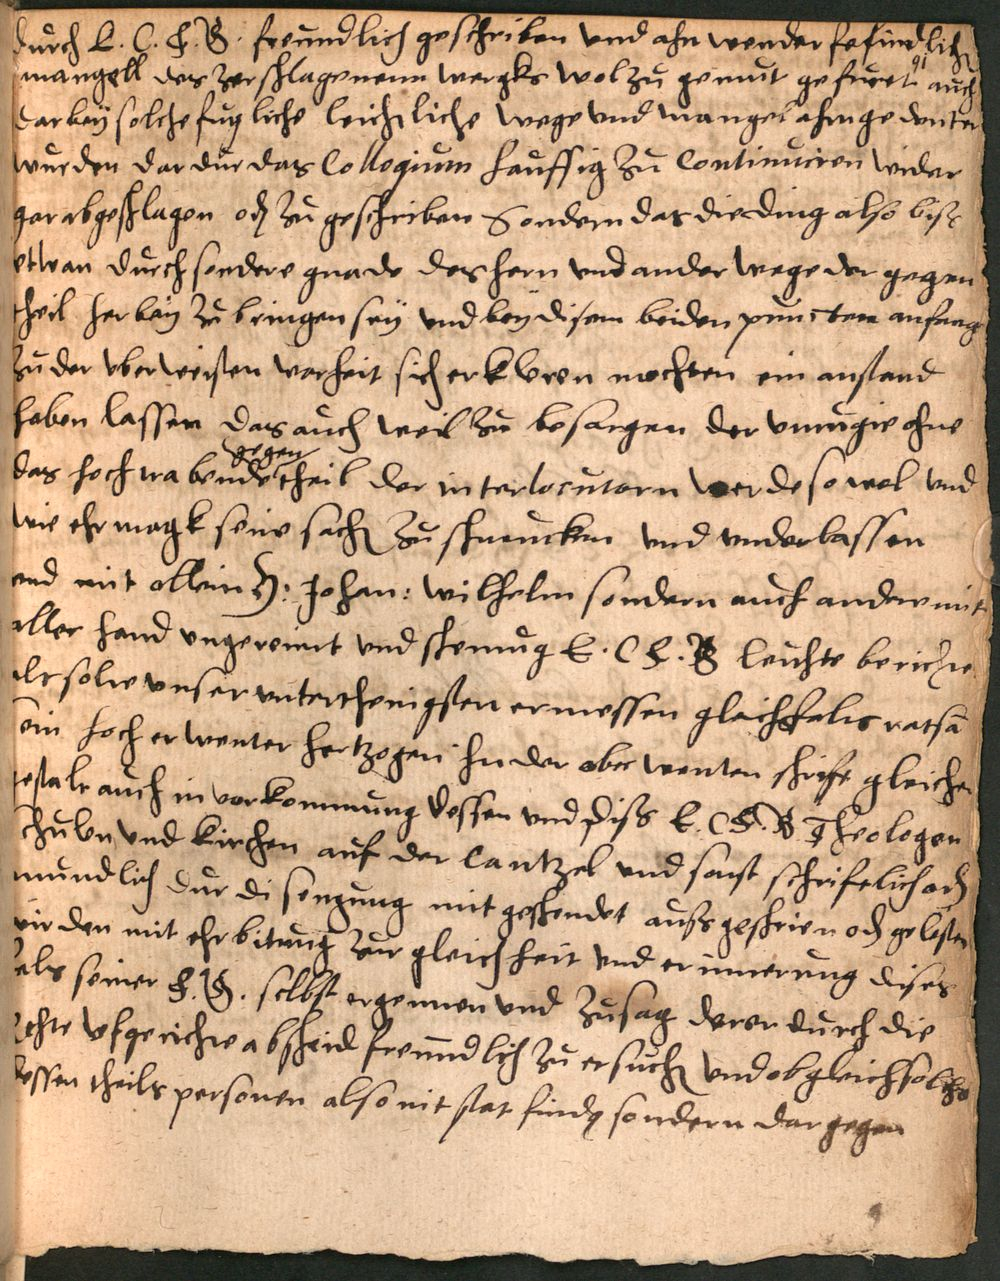 durch E. C. F. G. freundlich geschriben und ahn wender befindlich
mangell des zerschlagenenn wergks wol zu gemut gefuret auch
darbey solche fugliche leichtliche wege und mangel ahn gedeuten
wurden dardur das Collegium hauffig zu Continuiren wider
gar abgeschlagen od zu geschriben Sondern das die ding also biss
etwan durch sondere gnade des hern und ander wege der gegen
theil herbey zu bringen sey und bey disem beiden puncten anfang
zu der uberweisten warheit sich erkleren mochten ein anstand
haben lassen das auch weil zu besorgen der unrugie ohne
das hochtrabende gegen theil der interlocutorn werde so wol und
wie ehr magk seine sach zu schmucken und underlassen
und nit allein H: Johan: Wilhelm sondern auch andere mit
aller hand ungereimt und E. C. F. G. leuchte berichte
als solie unser unterthenigsten ermessen gleichfals ratsa
ein hoch erwenter hertzogen In der oberwenten schrift gleicher
gestalt auch in vorkommung dessen und diss E. C. F. G. Theologen
schulen und kirchen auf der Cantzel und sonst schriftlich od
mundlich dur di senzung nit geschendet auss geschrien od gelestert
wirden mit ehrbitung zur gleichheit und erinnerung dises
als seiner F. G. selbst ergennen und zusag derer durch die
rehte ufgerichte abscheid freundlich zu ersuch und ob gleich solche
dessen theils personen also nit stat find sondern dargegen